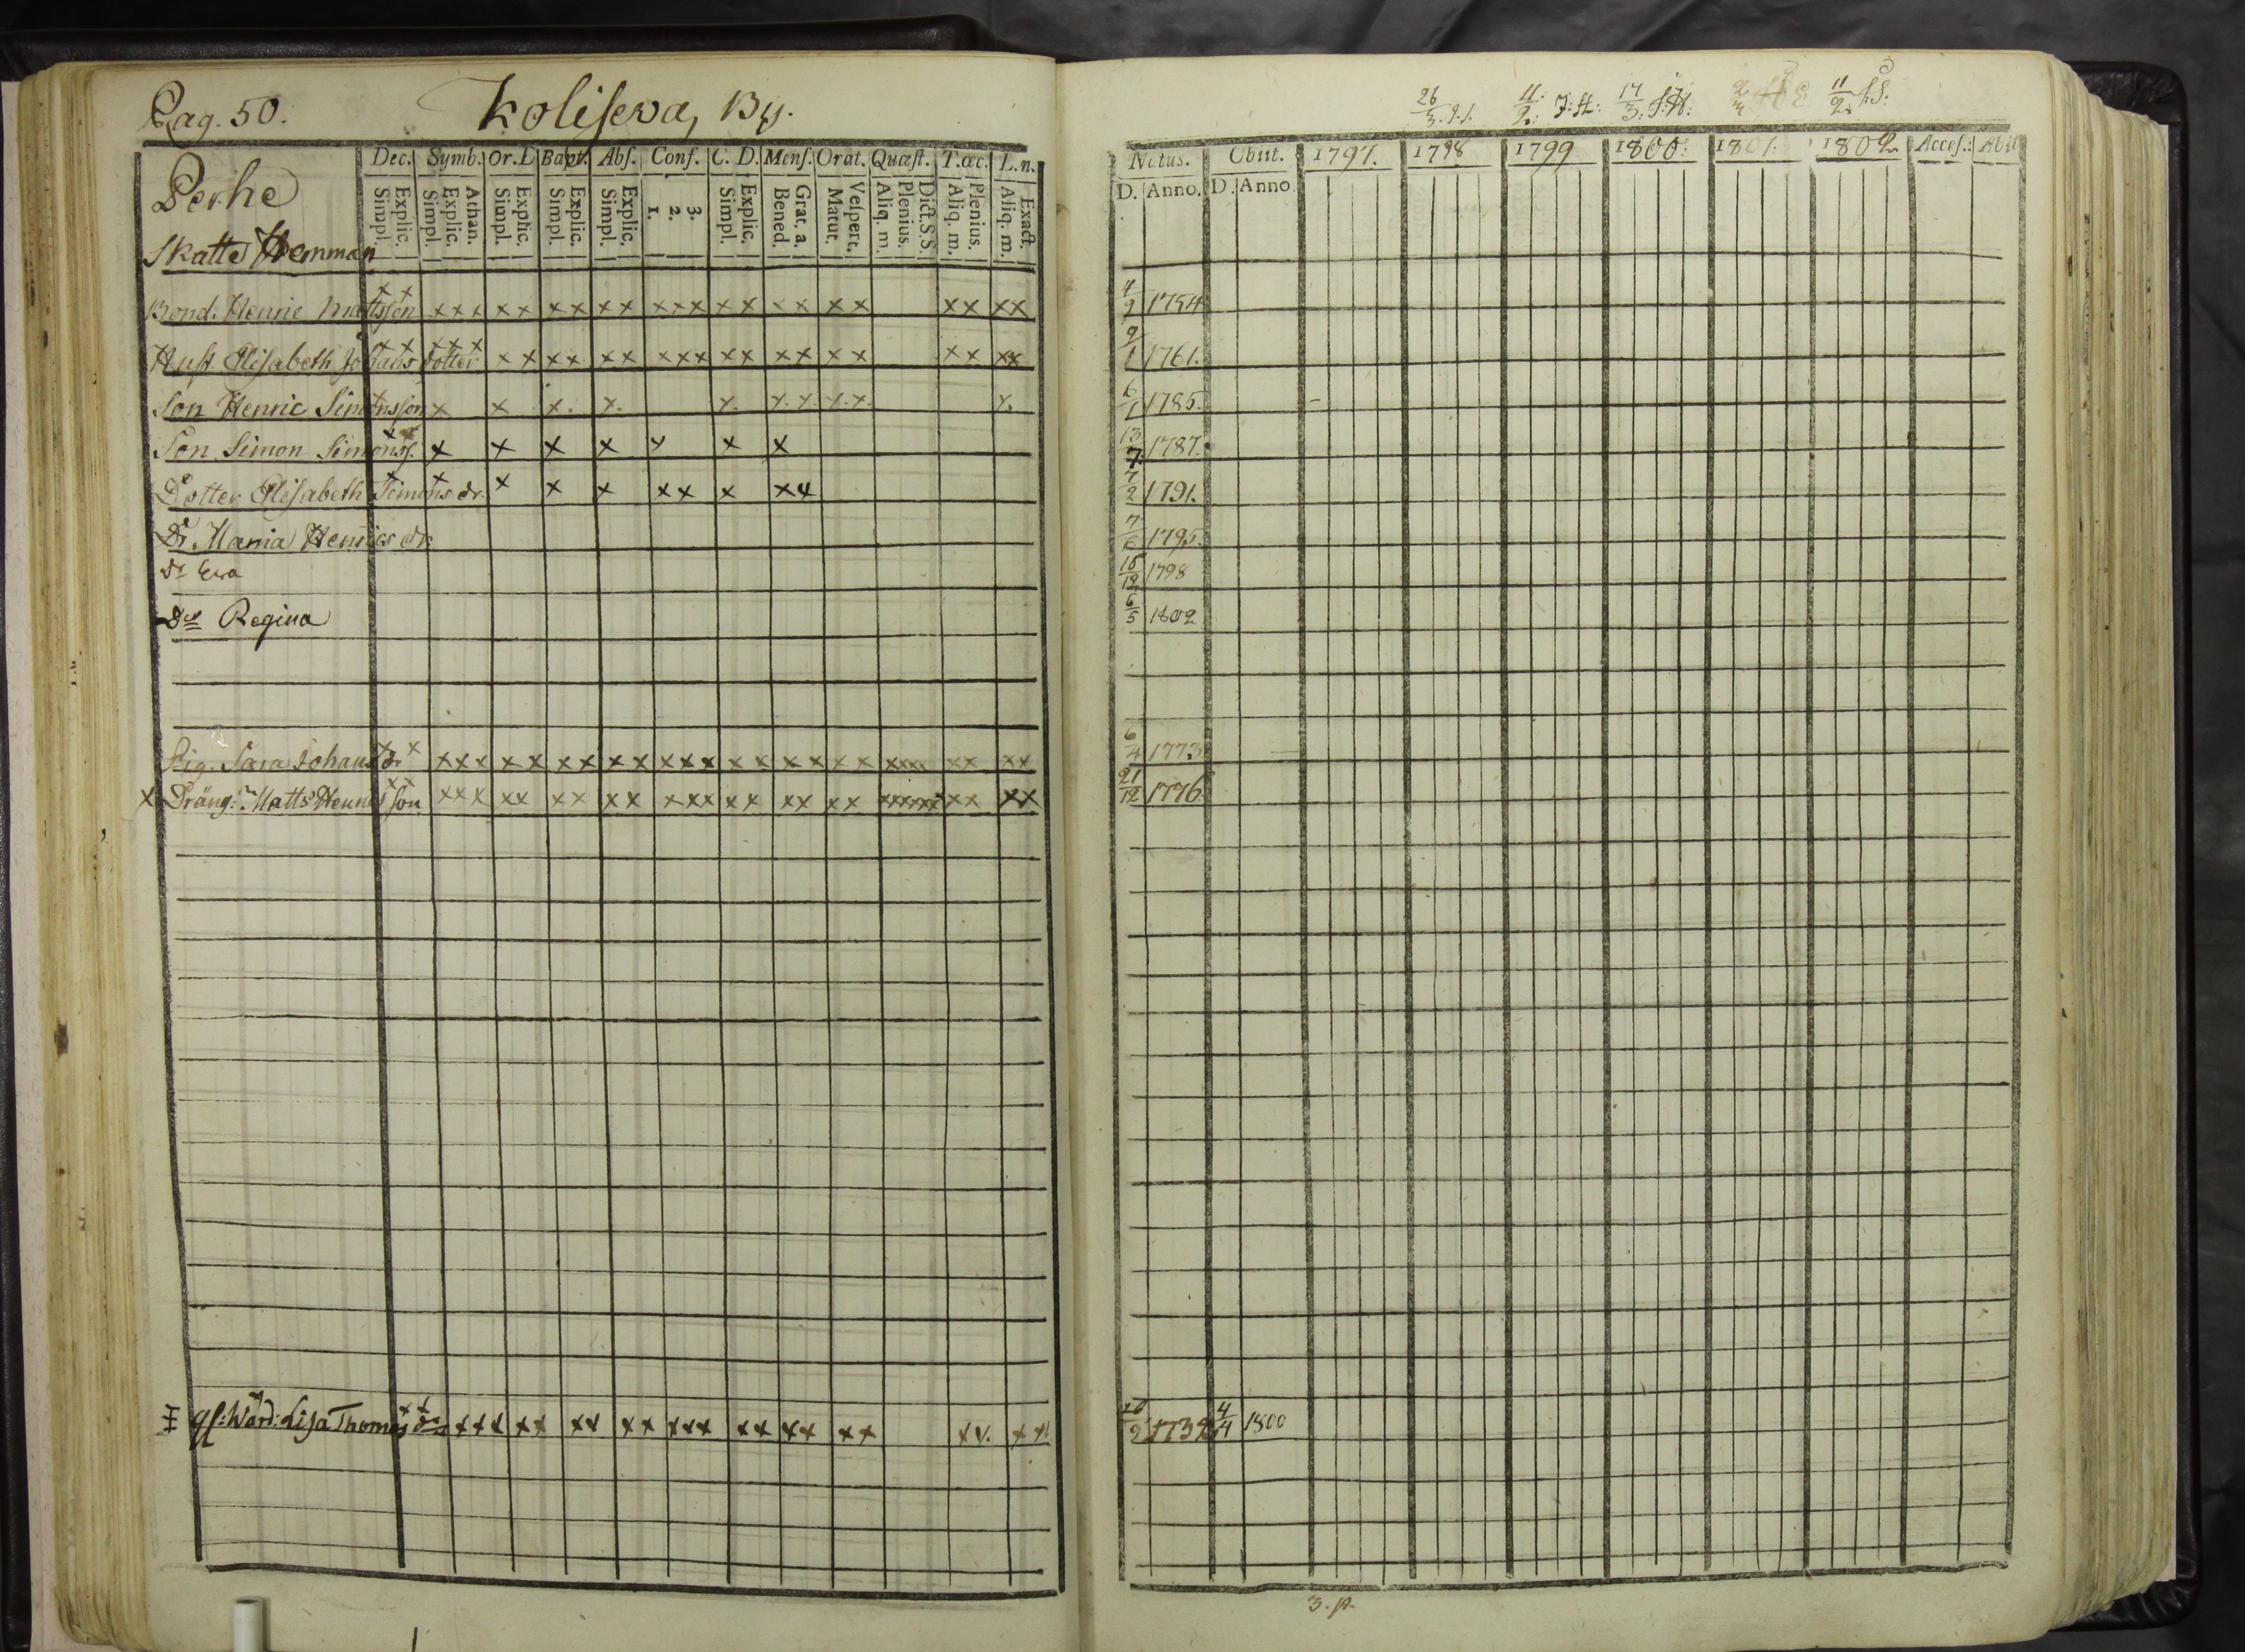 Pag. 50. Koliseva, By.
Perhe
Skatte Hemman
Dec. Symb. Or.D Bapt. Abs. Conf. C. D. Mens. Orat. Quæst. T.œc. L.n.
Simpl. Explic. Simpl. Explic. Athan. Simpl. Explic. Simpl. Explic. Simpl. Explic. 1. 2. 3. Simpl. Explic. Bened. Grat. a. Matut. Vespert. Aliq. m. Plenius. Dict.S.S. Aliq. m. Plenius. Aliq. m. Exact.
Bond. Henric Mattsson
Hust. Elisabeth Johans dotter
Son Henric Simonsson
Son Simon Simonss.
Dotter Elisabeth Simons dr.
Dr. Maria Henrics dr.
dr Eva
Dr Regina
Pig. Sara Johans dr
x Dräng: Matts Henricsson
Lisa Thomas dr
26/3 11/2 J:H: 17/3 11/2
Natus. Obiit. 1797. 1798 1799 1800: 1801. 1802 Acces.: Abit
D. Anno. D. Anno.
4/9 1754
9/1 1761.
6/1 1785.
13/7 1787.
7/2 1791.
1795.
1798
6/5 1802
6/4 1773
21/12 1776
1732 4/4 1800
3. p.